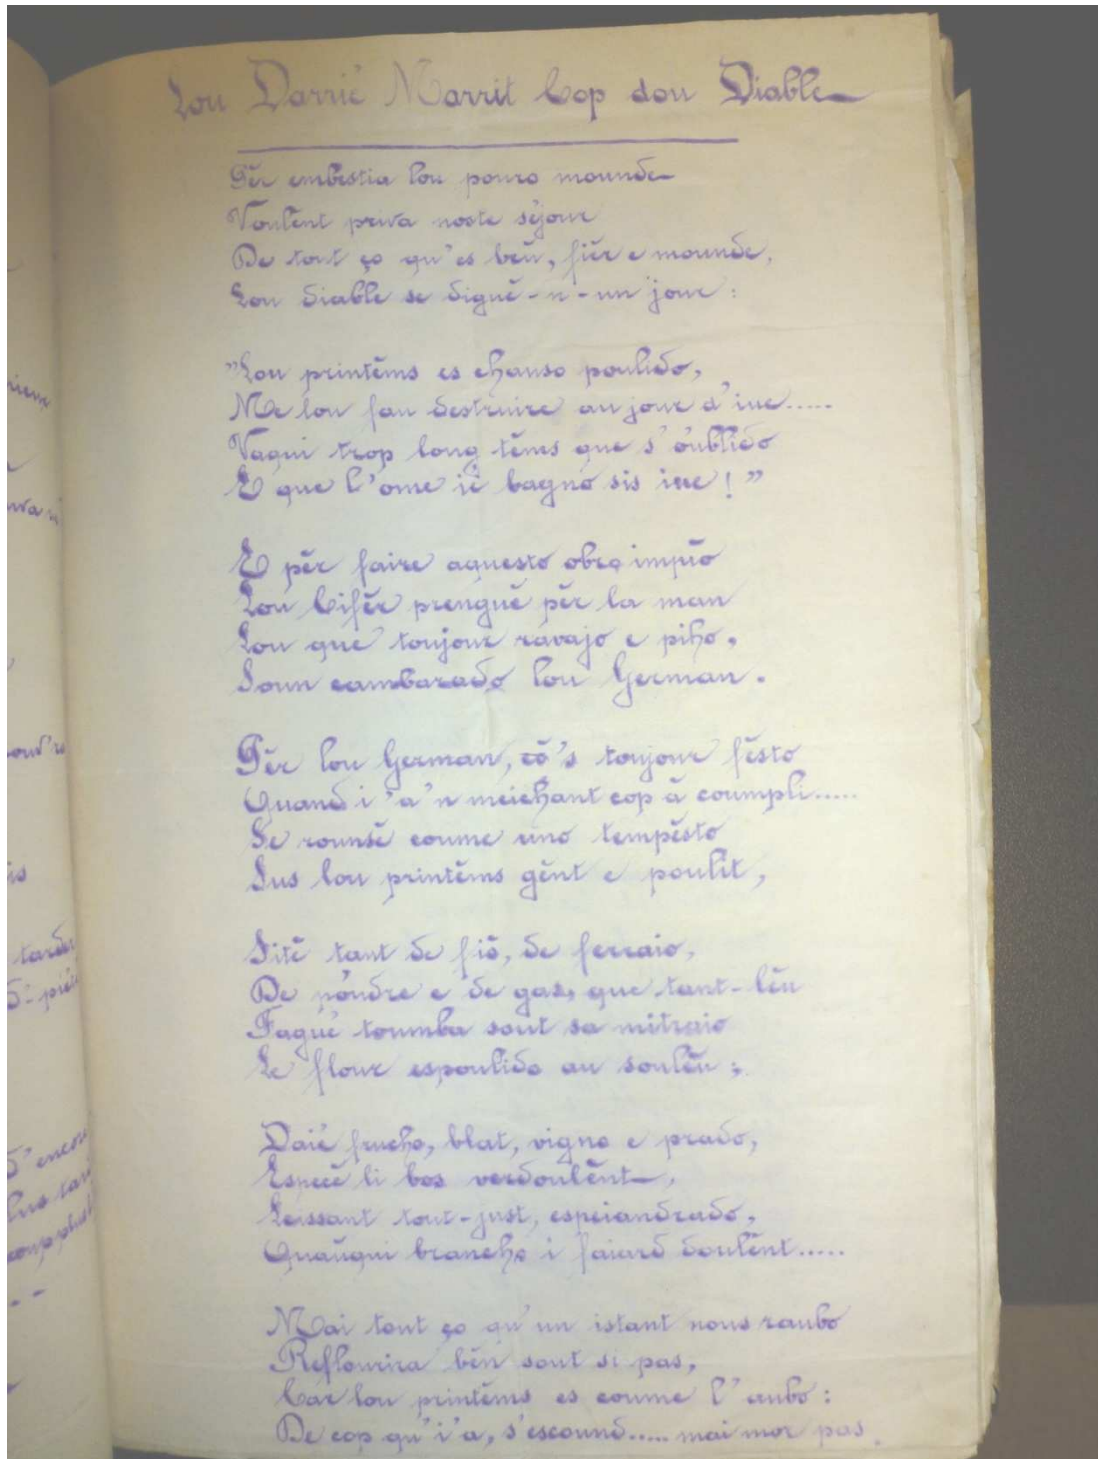 Lou Darrié Marrit Cop dou Diable
Pèr embestia lou pouro mounde
Voulènt priva noste sejour
De tout ço qu'es bèu, fièr e mounde,
Lou diable se diguè-n-un jour :
"Lou printèms es chauso poulido,
Me lou fau destruire au jour d'iue.....
Vaqui trop long tèms que s'óublido
E que l'ome ié bagno sis iue ! "
E pèr faire aquesto obro impìo
Lou Cifèr prenguè pèr la man
Lou que toujour ravajo e piho,
Soun cambarado lou German.
Pèr lou German, cò's toujour fèsto
Quand i'a'n meichant cop à coumpli.....
Se rounsè coume uno tempèsto
Sus lou printèms gènt e poulit,
Jitè tant de fiò, de ferraio,
De póudre e de gas, que tant-lèu
Faguè toumba sout sa mitraio
Le flour espoulido au soulèu ;
Daiè frucho, blat, vigno e prado,
Especè li bos verdoulènt,
Leissant tout-just, espeiandrado,
Quàuqui brancho i faiard doulènt.....
Mai tout ço qu'un istant nous raubo
Reflourira bèn sout si pas,
Car lou printèms es coume l'aubo :
De cop qu'i'a, s'escound..... mai mor pas.